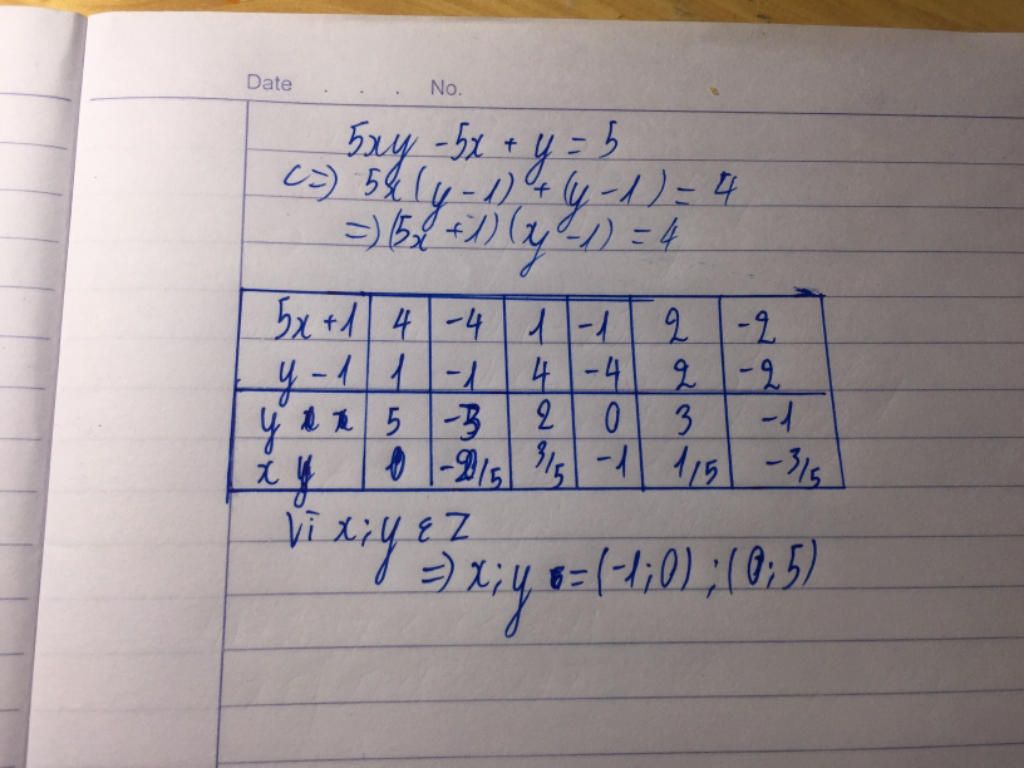 Date . . . . No.
5xy - 5x + y = 5
<=> 5x(y - 1) + (y - 1) = 4
=> (5x + 1)(y - 1) = 4
5x + 1 4 -4 1 -1 2 -2
y - 1 1 -1 4 -4 2 -2
y 5 -3 2 0 3 -1
x 0 /5 3/5 -1 1/5 -3/5
Vì x; y ε Z
=> x; y = (-1; 0) ; (0; 5)